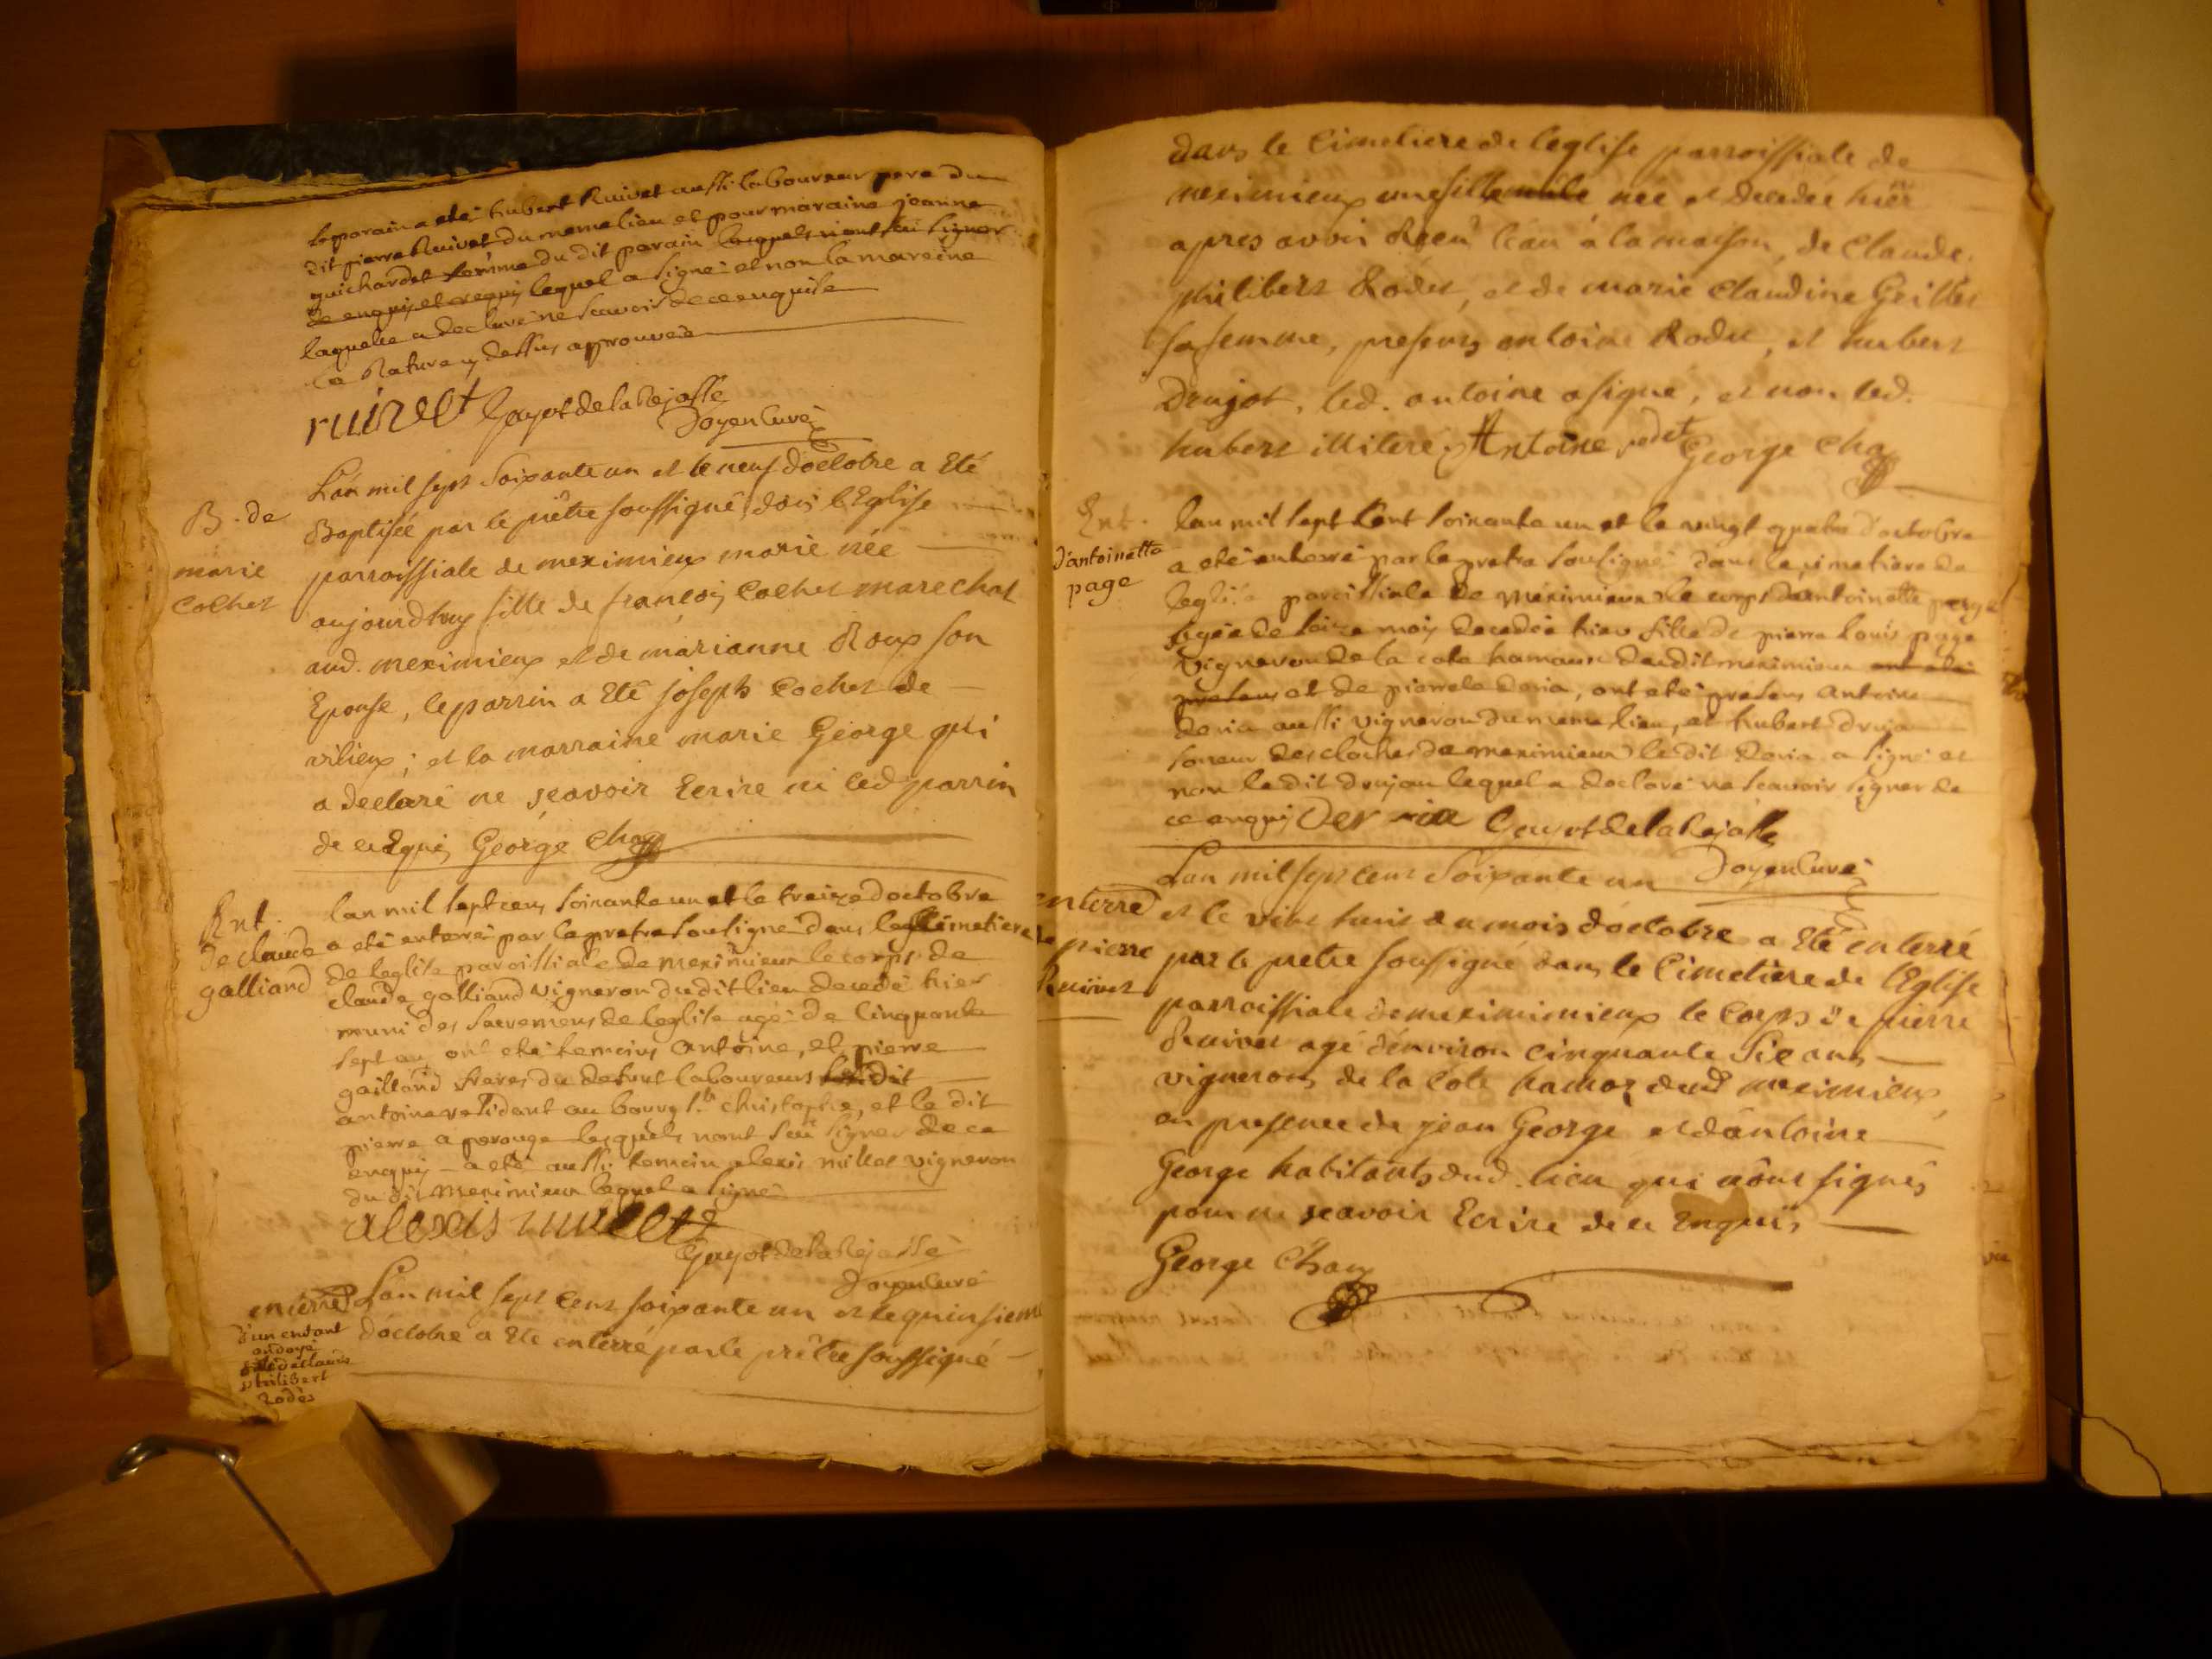 le parain a eté hubert Ruivet aussi laboureur pere du
dit pierre Ruivet du meme lieu et pour maraine jeanne
guichardet femme du dit parain lesquels n'ont sceu signer
de enquis et requis lequel a signé et non la mareine
laquelle a declaré ne scavoir de ce enquise
la Rature cy dessus aprouvée
ruivet Gayot de la Rejasse
Doyen Curé
B. de
marie
Cochet
L'an mil sept soixante un et le neuf d'octobre a Eté
Baptisée par le prêtre soussigné, dans l'Eglise
parroissiale de meximieux marie née
aujourdhuy fille de françois Cochet marechal
aud. meximieux et de marianne Roux son
Epouse, le parrin a Eté joseph Cochet de
vilieux; et la marraine marie George qui
a declaré ne sçavoir Ecrire ni led parrin
de ce Equis George Chaz
Ent.
de claude
galliand
lan mil sept cens soixante un et le treize doctobre
a eté enterré par le pretre sousigné dans le cimetiere
de leglise paroissiale de meximieux le corps de
claude galliand vigneron dudit lieu decedé hier
muni des sacremens de leglise agé de Cinquante
sept ans ont eté temoins antoine, et pierre
gailland freres du defunt laboureurs ledit
antoine residant au bourg st christophe, et le dit
pierre a perouge lesquels nont sceu signer de ce
enquis a eté aussi temoin alexis millet vigneron
du dit meximieux lequel a signé
alexis millet
Gayot de la Rejasse
Doyen Curé
enterré
d'un enfant
ondoyé
de claude
philibert
Rodès
L'an mil sept cens soixante un et le quinsieme
d'octobre a Ete enterré par le prêtre soussigné
dans le Cimetiere de l'eglise parroissiale de
meximieux une fille née et decedée hier
apres avoir Receu l'eau a la maison, de Claude
philibert Rodet, et de marie Claudine Geillet
sa femme, presens antoine Rodet, et hubert
Drujot, led. antoine a signé, et non led.
hubert illiteré, Antoine redet George Chaz
Ent.
d'antoinette
page
lan mil sept cent soixante un et le vingt quatre d'octobre
a eté enterré par le pretre sousigné dans le cimetiere de
leglise paroissiale de meximieux le corps d'antoinette page
agée de seize mois decedée hier fille de pierre louis page
vigneron de la cote hameau dudit meximieux ont eté
presens et de pierrete doria, ont eté presens antoine
doria aussi vigneron du meme lieu, et hubert druja
soneur des cloches de meximieux le dit doria a signé et
non le dit drujau lequel a declaré ne scavoir signer de
ce enquis Der ria Gayot de la Rejasse
Doyen Curé
enterré
de pierre
Ruivet
L'an mil sept cens soixante un
et le vint huit du mois d'octobre a Eté enterré
par le pretre soussigné dans le Cimetiere de l'Eglise
parroissiale de meximimieux le Corps de pierre
Ruivet agé d'environ cinquante six ans
vigneron de la Cote hamoz dud meximieux
en presence de jean George et d'antoine
George habitants dud. lieu qui n'ont signés
pour ne sçavoir Ecrire de ce Enquis
George Chaz